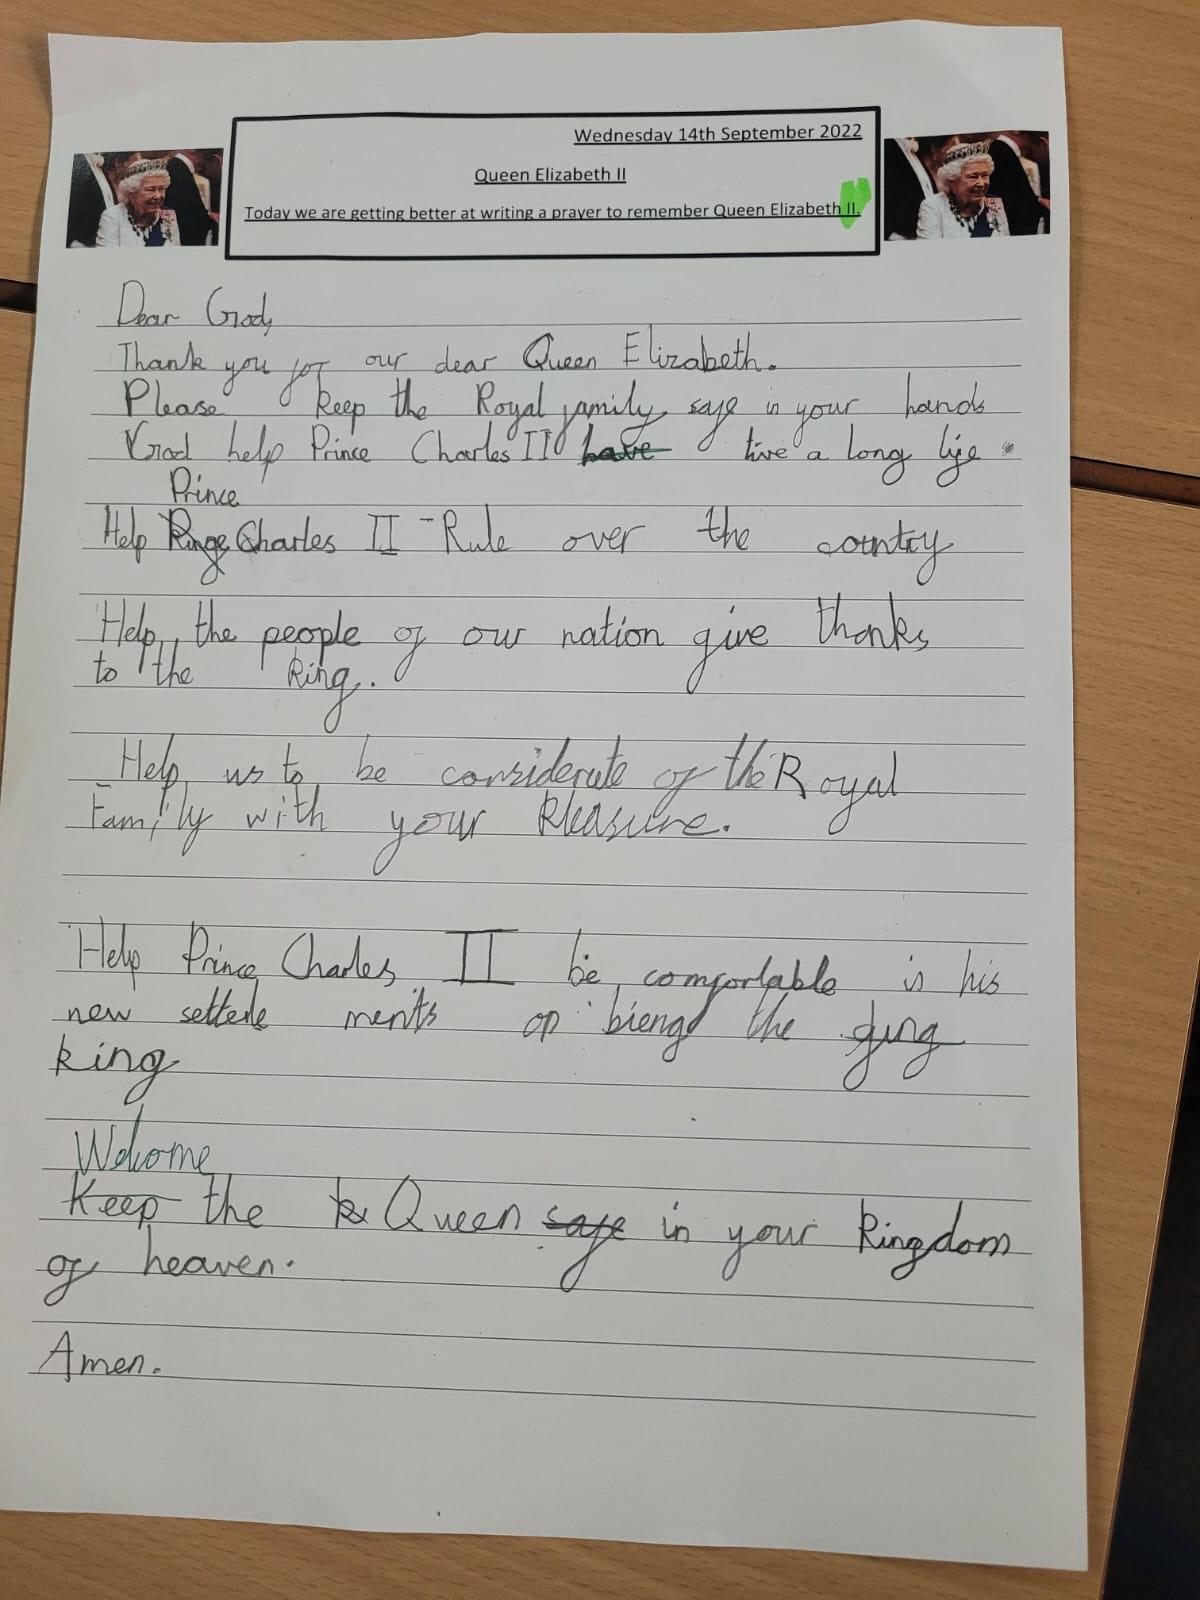 Wednesday 14th September 2022
Queen Elizabeth II
Today we are getting better at writing a prayer to remember Queen Elizabeth II.
Dear God,
Thank you for our dear Queen Elizabeth.
Please keep the Royal family safe in your hands
God help Prince Charles II have live a long life
Prince
Help Charles II Rule over the country
Help the people of our nation give thanks
to the king.
Help us to be considerate of the Royal
Family with your Pleasure.
Help Prince Charles II be comfortable is his
new setterle ments op bieng the
king
Welcome
Keep the Queen safe in your kingdom
of heaven.
Amen.